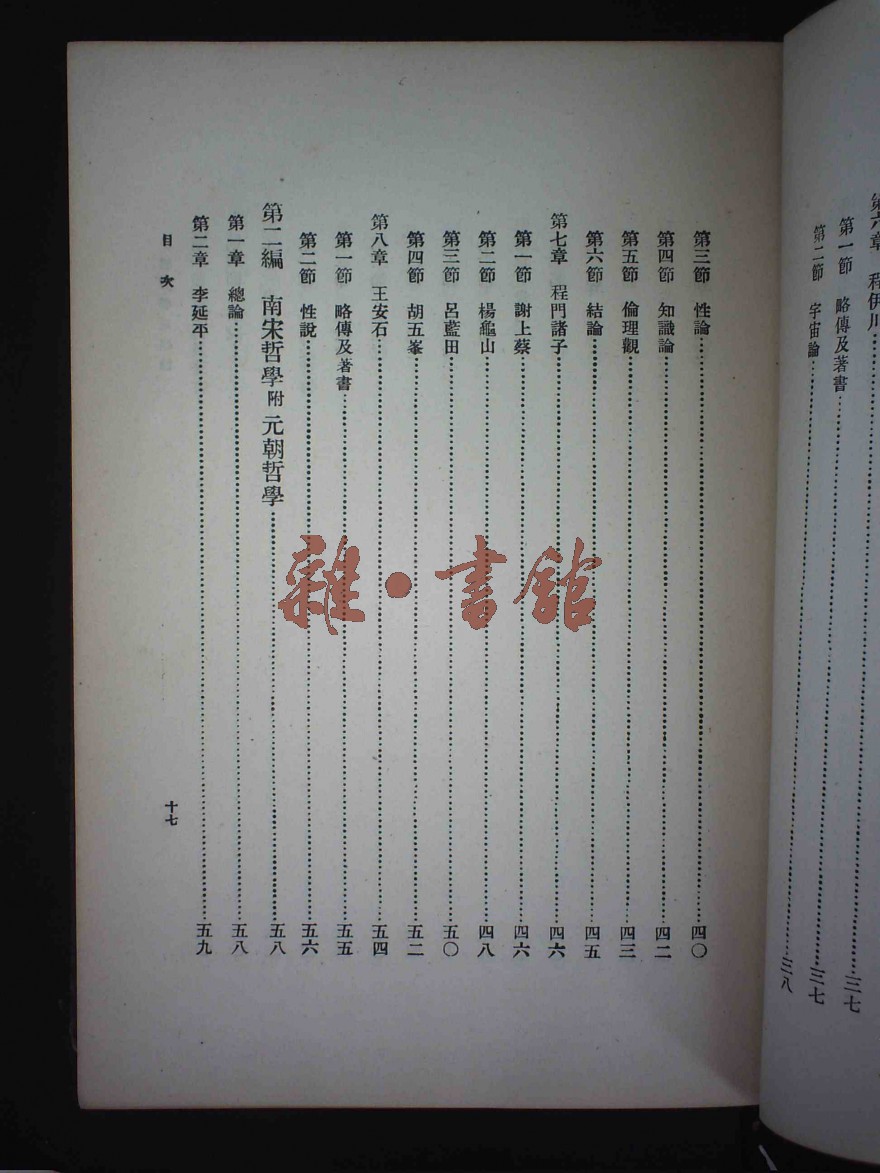 第六章 程伊川……三七
第一節 略傳及著書……三七
第二節 宇宙論……三八
第三節 性論……四〇
第四節 知識論……四二
第五節 倫理觀……四三
第六節 結論……四五
第七章 程門諸子……四六
第一節 謝上蔡……四六
第二節 楊龜山……四八
第三節 呂藍田……五〇
第四節 胡五峯……五二
第八章 王安石……五四
第一節 略傳及著書……五五
第二節 性說……五六
第二編 南宋哲學附元朝哲學……五八
第一章 總論……五八
第二章 李延平……五九
目次
十七
雜·書館